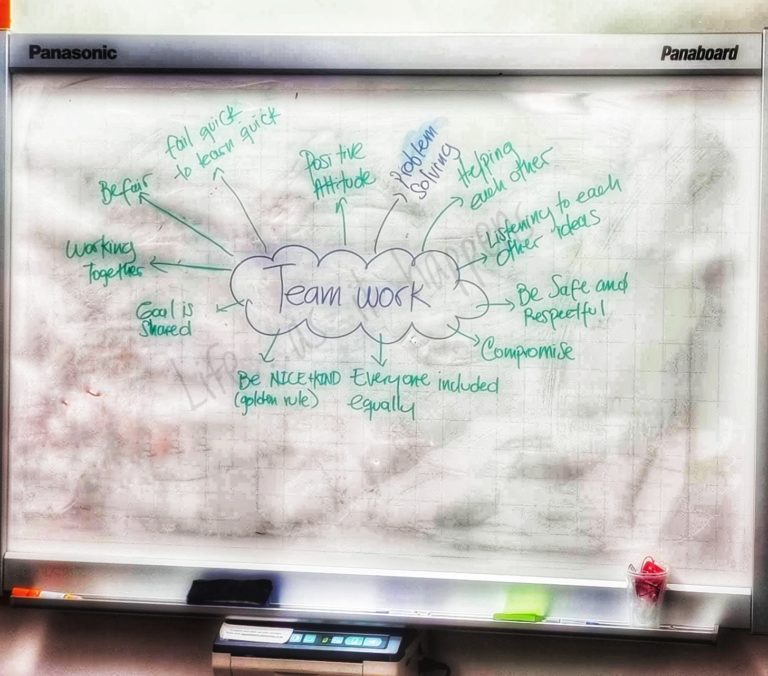 Panasonic
Panaboard
fail quick
to learn quick
Be fair
Positive
Attitude
Problem
Solving
Helping
each other
Listening to each
other ideas
Working
Together
Team work
Goal is
Shared
Be Safe and
Respectful
Compromise
Be NICE + KIND
(golden rule)
Everyone included
equally
Life